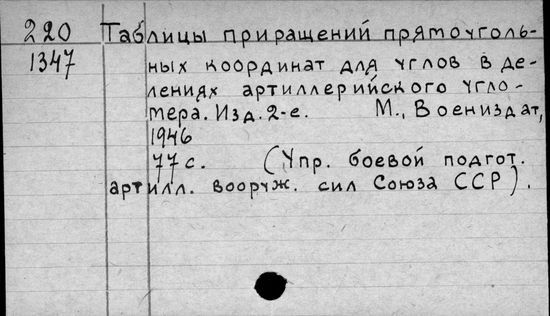 220 Таблицы приращений прямоуголь-
1347 ных координат для углов в де-
лениях артиллерийского угло-
мера. Изд. 2-е. М., Воениздат,
1946
77 с. (Упр. боевой подгот.
артилл. вооруж. сил Союза ССР).